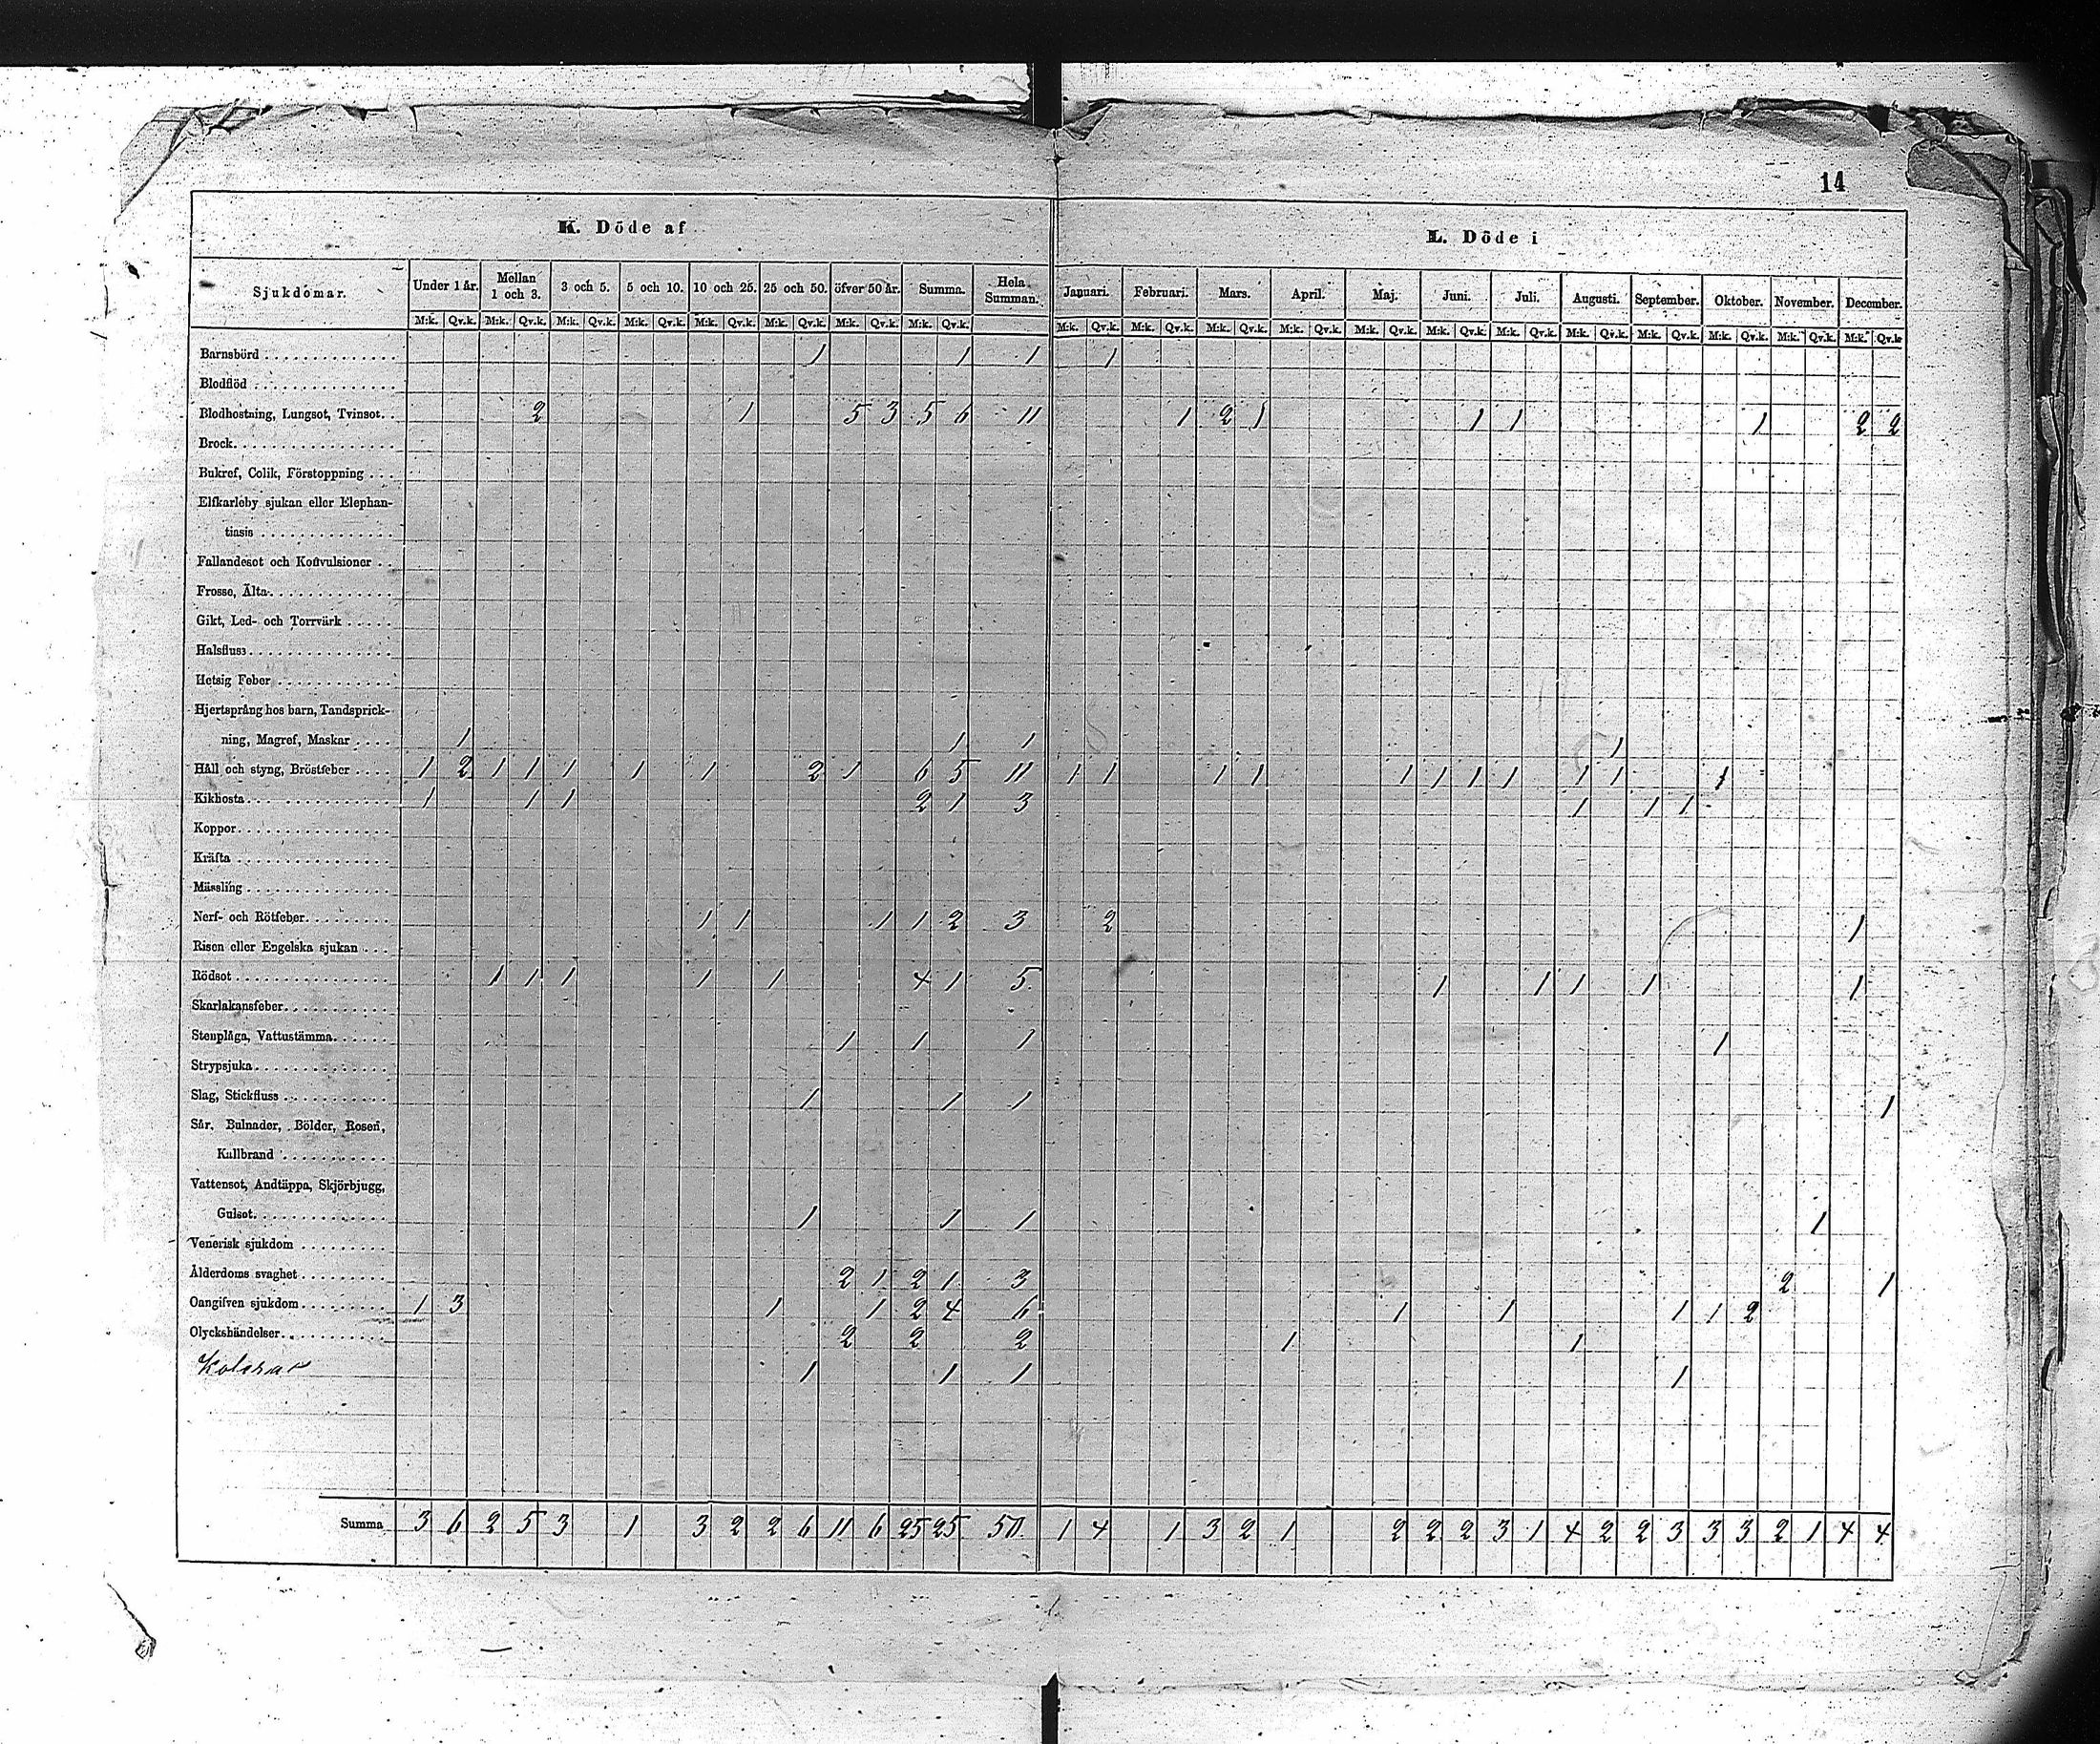 14
K. Döde af
L. Döde i
Sjukdomar. Under 1 år. Mellan 1 och 3. 3 och 5. 5 och 10. 10 och 25. 25 och 50. öfver 50 år. Summa. Hela Summan. Januari. Februari. Mars. April. Maj. Juni. Juli. Augusti. September. Oktober. November. December.
M:k. Qv.k. M:k. Qv.k. M:k. Qv.k. M:k. Qv.k. M:k. Qv.k. M:k. Qv.k. M:k. Qv.k. M:k. Qv.k. M:k. Qv.k. M:k. Qv.k. M:k. Qv.k. M:k. Qv.k. M:k. Qv.k. M:k. Qv.k. M:k. Qv.k. M:k. Qv.k. M:k. Qv.k. M:k. Qv.k. M:k. Qv.k. M:k. Qv.k
Barnsbörd 1 1 1 1
Blodflöd
Blodhostning, Lungsot, Tvinsot. 2 1 5 3 5 6 11 1 2 1 1 1 1 2 2
Brock.
Bukref, Colik, Förstoppning
Elfkarleby sjukan eller Elephan-
tiasis
Fallandesot och Konvulsioner
Frosso, Älta
Gikt, Led- och Torrvärk
Halsfluss
Hetsig Feber
Hjertsprång hos barn, Tandsprick-
ning, Magref, Maskar 1 1 1 1
Håll och styng, Bröstfeber 1 2 1 1 1 1 1 2 1 6 5 11 1 1 1 1 1 1 1 1 1 1 1
Kikhosta 1 1 1 2 1 3 1 1 1
Koppor
Kräfta
Mässling
Nerf- och Rötfeber 1 1 1 1 2 3 2 1
Risen eller Engelska sjukan
Rödsot 1 1 1 1 1 4 1 5. 1 1 1 1 1
Skarlakansfeber
Stenplåga, Vattustämma 1 1 1 1
Strypsjuka
Slag, Stickfluss 1 1 1 1
Sår, Bulnader, Bölder, Rosen,
Kallbrand
Vattensot, Andtäppa, Skjörbjugg,
Gulsot 1 1 1 1
Venerisk sjukdom
Ålderdoms svaghet 2 1 2 1 3 2 1
Oangifven sjukdom 1 3 1 1 2 4 6 1 1 1 1 2
Olyckshändelser 2 2 2 1 1
Koleran 1 1 1 1
Summa 3 6 2 5 3 1 3 2 2 6 11 6 25 25 50. 1 4 1 3 2 1 2 2 2 3 1 4 2 2 3 3 3 2 1 4 4